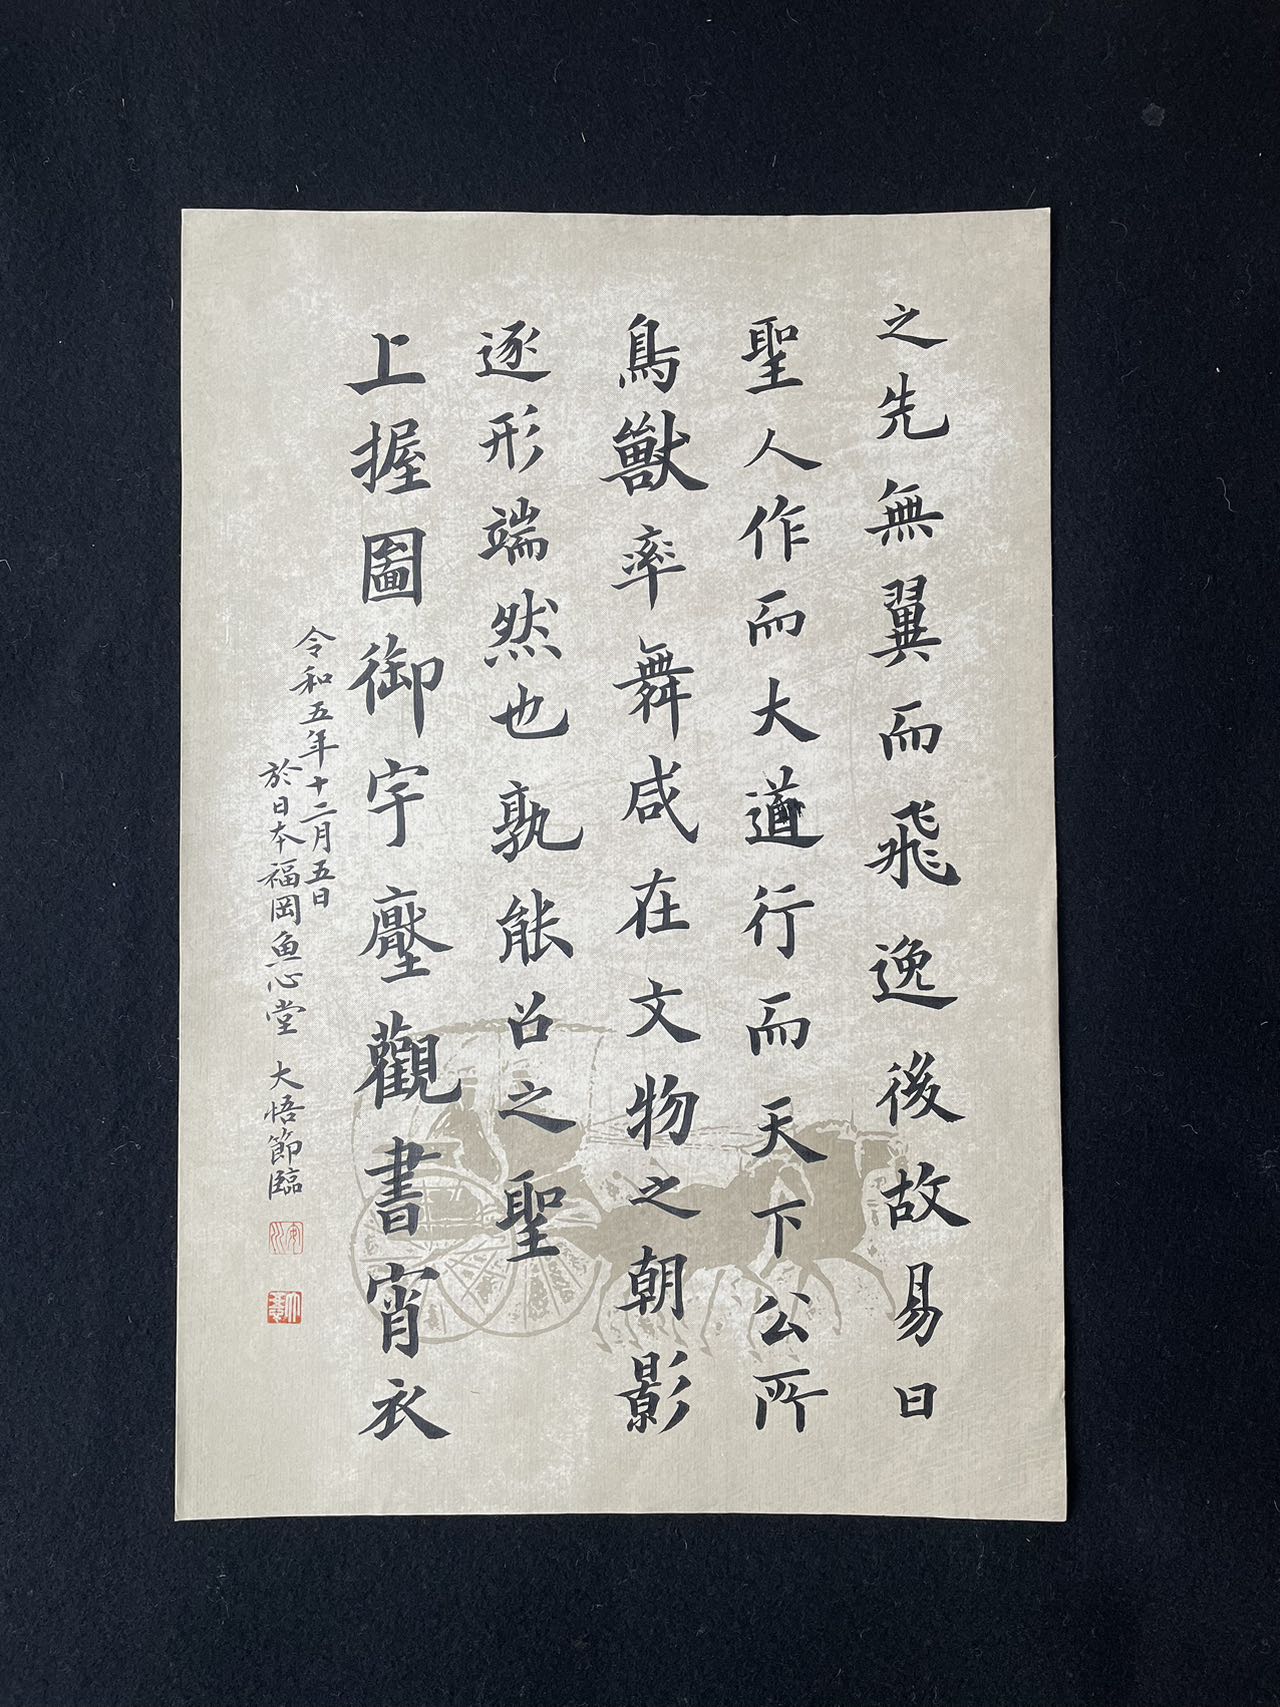 之先無翼而飛逸後故易曰
聖人作而大道行而天下公所
鳥獸率舞咸在文物之朝影
逐形端然也孰能召之聖
上握圖御宇壓觀書宵衣
令和五年十二月五日
於日本福岡魚心堂 大悟節臨